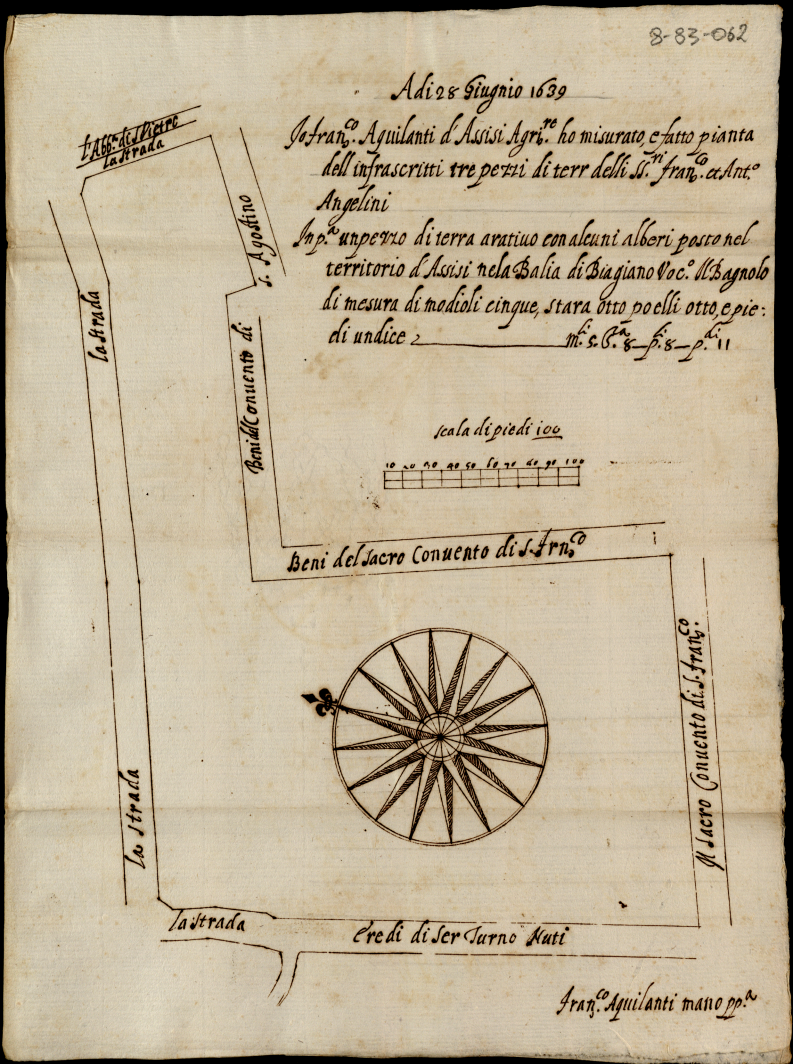 8-83-062
A di 28 Giugnio 1639
Io Fran.co Aquilanti d'Assisi Agri.re ho misurato, e fatto pianta
dell'infrascritti tre pezzi di terr delli SS.ri Fran.co et Ant.o
Angelini
In p.a un pezzo di terra arativo con alcuni alberi posto nel
territorio d'Assisi nela Balia di Biagiano Voc.o Il Bagnolo
di mesura di modioli cinque, stara otto poelli otto, e pie:
di undice m.li 5. S.ra 8 — p.li 8 — p.di 11
l'Abb.a di S. Pietro
la strada
S. Agostino
Beni del Convento di
la strada
scala di piedi 100
10 20 30 40 50 60 70 80 90 100
Beni del Sacro Convento di S. Frn.co
Il Sacro Convento di S. Fran.co
la strada
la strada
Eredi di Ser Turno Nuti
Fran.co Aquilanti mano pp.a